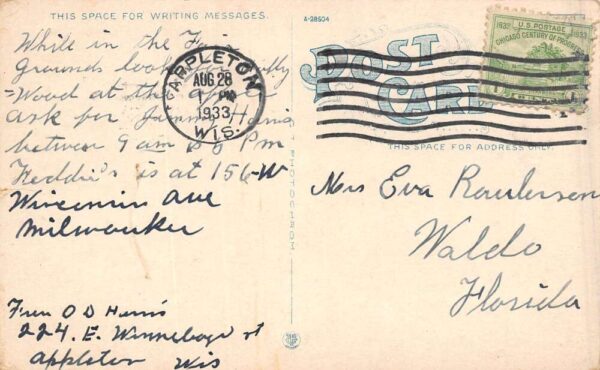 THIS SPACE FOR WRITING MESSAGES.
A-28604
While in the
Grounds look
Wood at the
ask for Harris
between 9 am & 8 Pm
Freddie's is at 156-W
Wisconsin Ave
Milwaukee
From O D Harris
224. E. Winnebago st
Appleton Wis
APPLETON
AUG 28
1 PM
1933
WIS.
POST CARD
1833 U.S. POSTAGE 1933
CHICAGO CENTURY OF PROGRESS
THIS SPACE FOR ADDRESS ONLY.
Mrs Eva Raulerson
Waldo
Florida